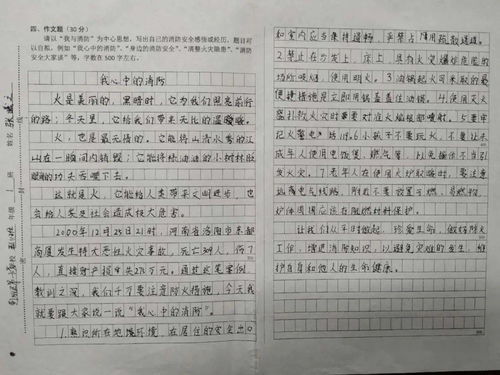 四、作文题（30分）
请以“我与消防”为中心思想，写出自己的消防安全感悟或经历，题目可
以自拟，例如“我心中的消防”、“身边的消防安全”、“清整火灾隐患”、“消防
安全大家谈”等，字数在500字左右。
我心中的消防
火是美丽的，黑暗时，它为我们照亮前行
的路；冬天里，它给我们带来无比的温暖暖。
火，也是最无情的。它能将山清水秀的江
山在一瞬间内销毁；它能将绿油油的小树林眨
眼的功夫吞噬下去。
这就是火，它能给人类带来文明进步，也
会给人类及社会造成极大危害。
2000年12月25日21时，河南省洛阳市东都
商厦发生特大恶性火灾事故，死亡309人，伤7
人，直接财产损失275万元。通过这笔案例，
教训之深，我们千万要注意防火措施，今天我
就要跟大家说一说“我心中的消防”。
1.熟识所在地环境，在居住的安全出口
和室内应当保持通畅，严禁占用疏散通道。
2.禁止在沙发上、床上、具有火灾爆炸危险的
场所吸烟，使用明火。3.油锅起火司采取的最
便捷措施是立即用锅盖盖住油锅。4.使用灭火
器扑救火灾时要对准火焰根部喷射。5.要牢
记火警电话119。6.小孩子不要玩火，不要让未
成年人使用电饭煲、燃气等，以免操作不当引
发火灾。7.老年人在使用火炉取暖时，要注意
远离电气线路，附近不要放置可燃、易燃物，
炉体周围应注在阻燃材料保护。
让我们从子时做起，珍爱生命，做好防火
工作，增进消防知识，以避免灾难的发生，维
护自身和他人的生命健康。
姓名
年级 1 班